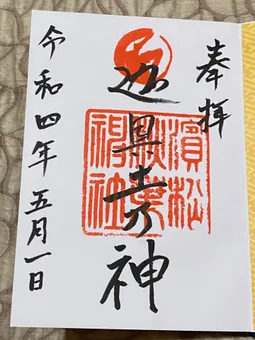 奉拝
迦具土乃神
濱松
秋葉
神社
令和四年五月一日